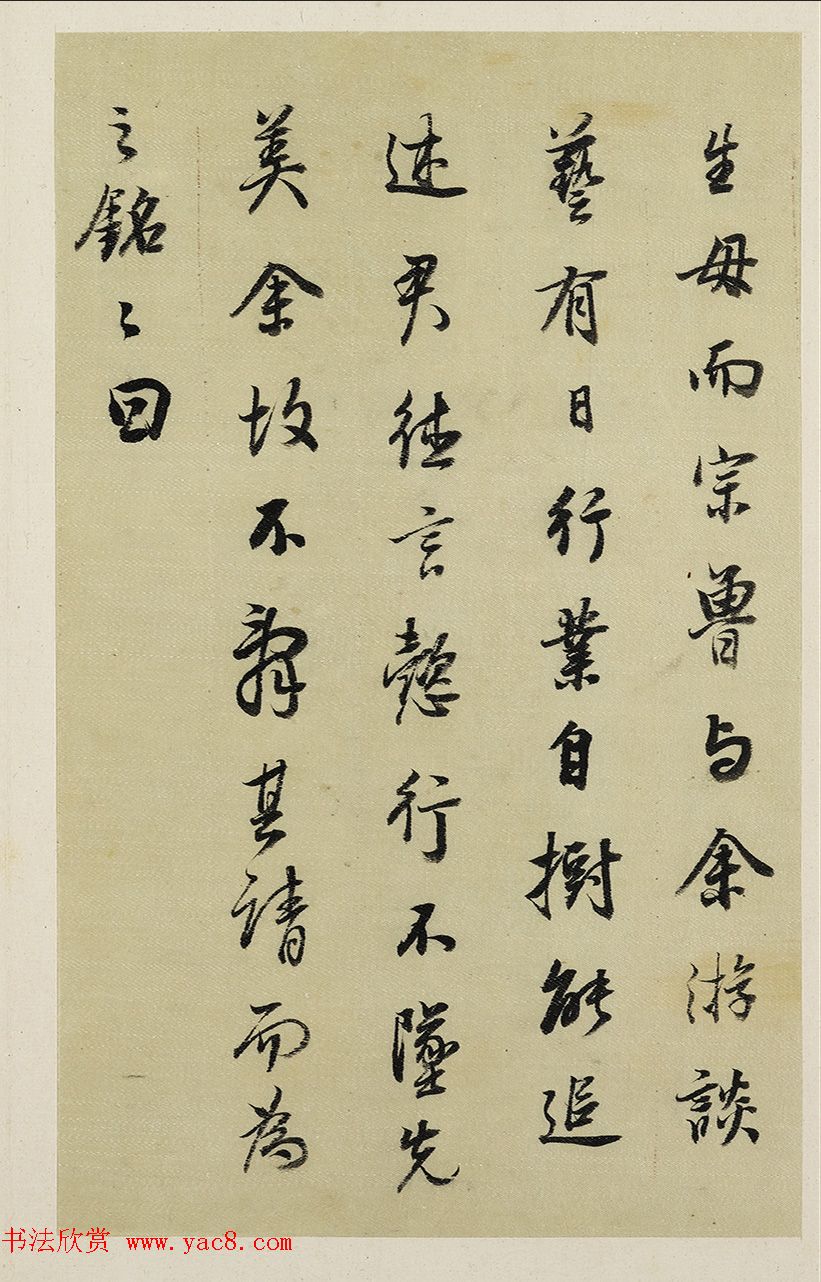 生毋而宗魯与余游談
藝有日行業自樹能追
述尹德言懿行不墜先
美余故不辭其請而為
之銘〻曰
书法欣赏 www.yac8.com